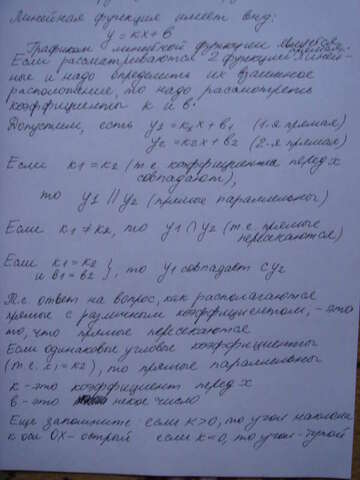 Линейная функция имеет вид:
y = kx + в
Графиком линейной функции является прямая
Если рассматриваются 2 функции линей-
ные и надо определить их взаимное
расположение, то надо рассмотреть
коэффициенты k и в.
Допустим, есть y1 = k1x + в1 (1-я прямая)
y2 = k2x + в2 (2-я прямая)
Если k1 = k2 (т.е. коэффициенты перед x
совпадают),
то y1 || y2 (прямые параллельны)
Если k1 ≠ k2, то y1 ∩ y2 (т.е. прямые
пересекаются)
Если k1 = k2
и в1 = в2 }, то y1 совпадает с y2
Т.е. ответ на вопрос, как располагаются
прямые с различным коэффициентом, - это
то, что прямые пересекаются
Если одинаковые угловые коэффициенты
(т.е. k1 = k2), то прямые параллельны
k - это коэффициент перед x
в - это некое число
Еще запомните если k > 0, то угол наклона
к оси OX - острый если k < 0, то угол - тупой